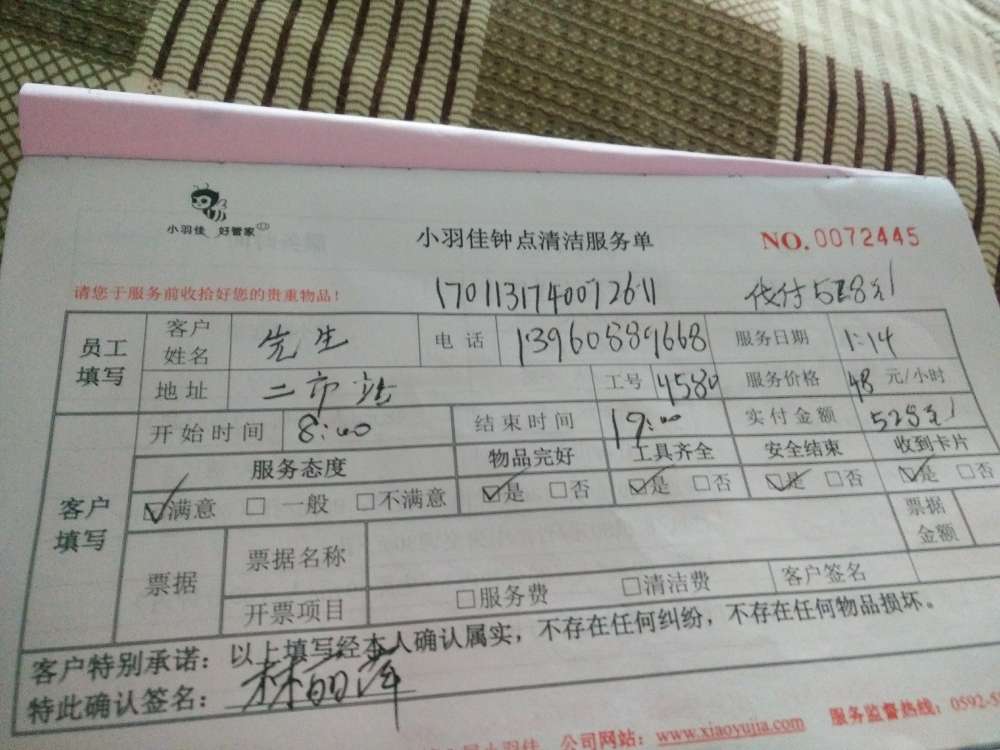 小羽佳 好管家
小羽佳钟点清洁服务单
NO.0072445
请您于服务前收拾好您的贵重物品！
17011317400072611 代付528元
员工填写 客户姓名 先生 电话 13960889668 服务日期 1:14
地址 二市站 工号 4580 服务价格 48 元/小时
客户填写 开始时间 8:00 结束时间 19:00 实付金额 528元
服务态度 物品完好 工具齐全 安全结束 收到卡片
☑满意 □一般 □不满意 ☑是 □否 ☑是 □否 ☑是 □否 ☑是 □否
票据 票据名称 票据金额
开票项目 □服务费 □清洁费 客户签名
客户特别承诺：以上填写经本人确认属实，不存在任何纠纷，不存在任何物品损坏。
特此确认签名：林
小羽佳 公司网站：www.xiaoyujia.com 服务监督热线：0592-5